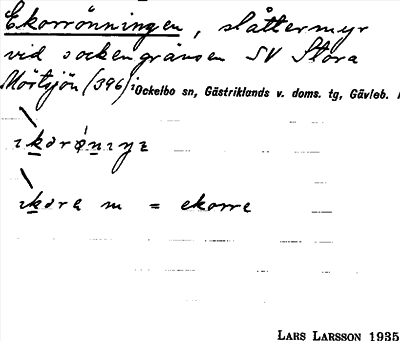 Ekorrönningen, slåttermyr
vid sockengränsen SV Stora
Mörtsjön (396) i Ockelbo sn, Gästriklands v. doms. tg, Gävleb.
ikara m = ekorre
LARS LARSSON 1935